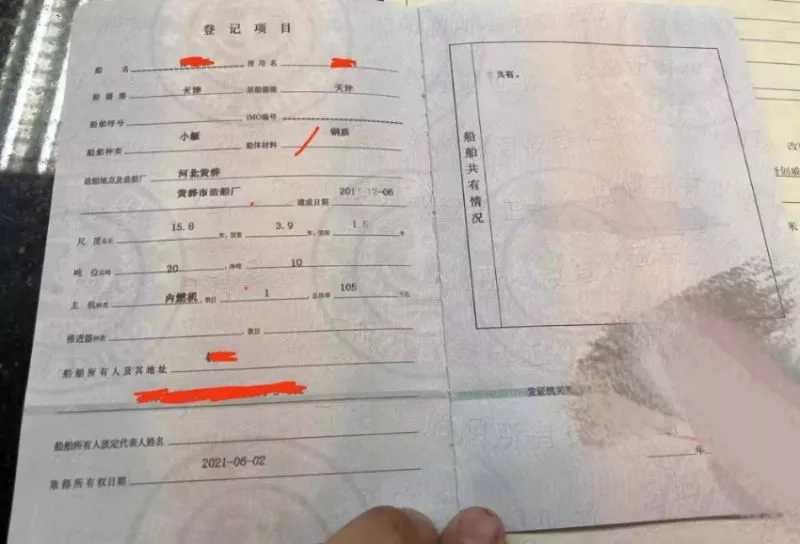 登记项目
船名 曾用名
船籍港 天津 原船籍港 天津
船舶呼号 IMO编号
船舶种类 小艇 船体材料 钢质
造船地点及造船厂 河北黄骅
黄骅市造船厂 建成日期
尺度总长 15.8 米,型宽 3.9 米,型深 米
吨位总吨 20 ,净吨 10
主机种类 内燃机 ,数目 1 ,总功率 105 千瓦
推进器种类 ,数目
船舶所有人及其地址
船舶所有人法定代表人姓名
取得所有权日期 2021-06-02
船舶共有情况
共有。
发证机关
年
米